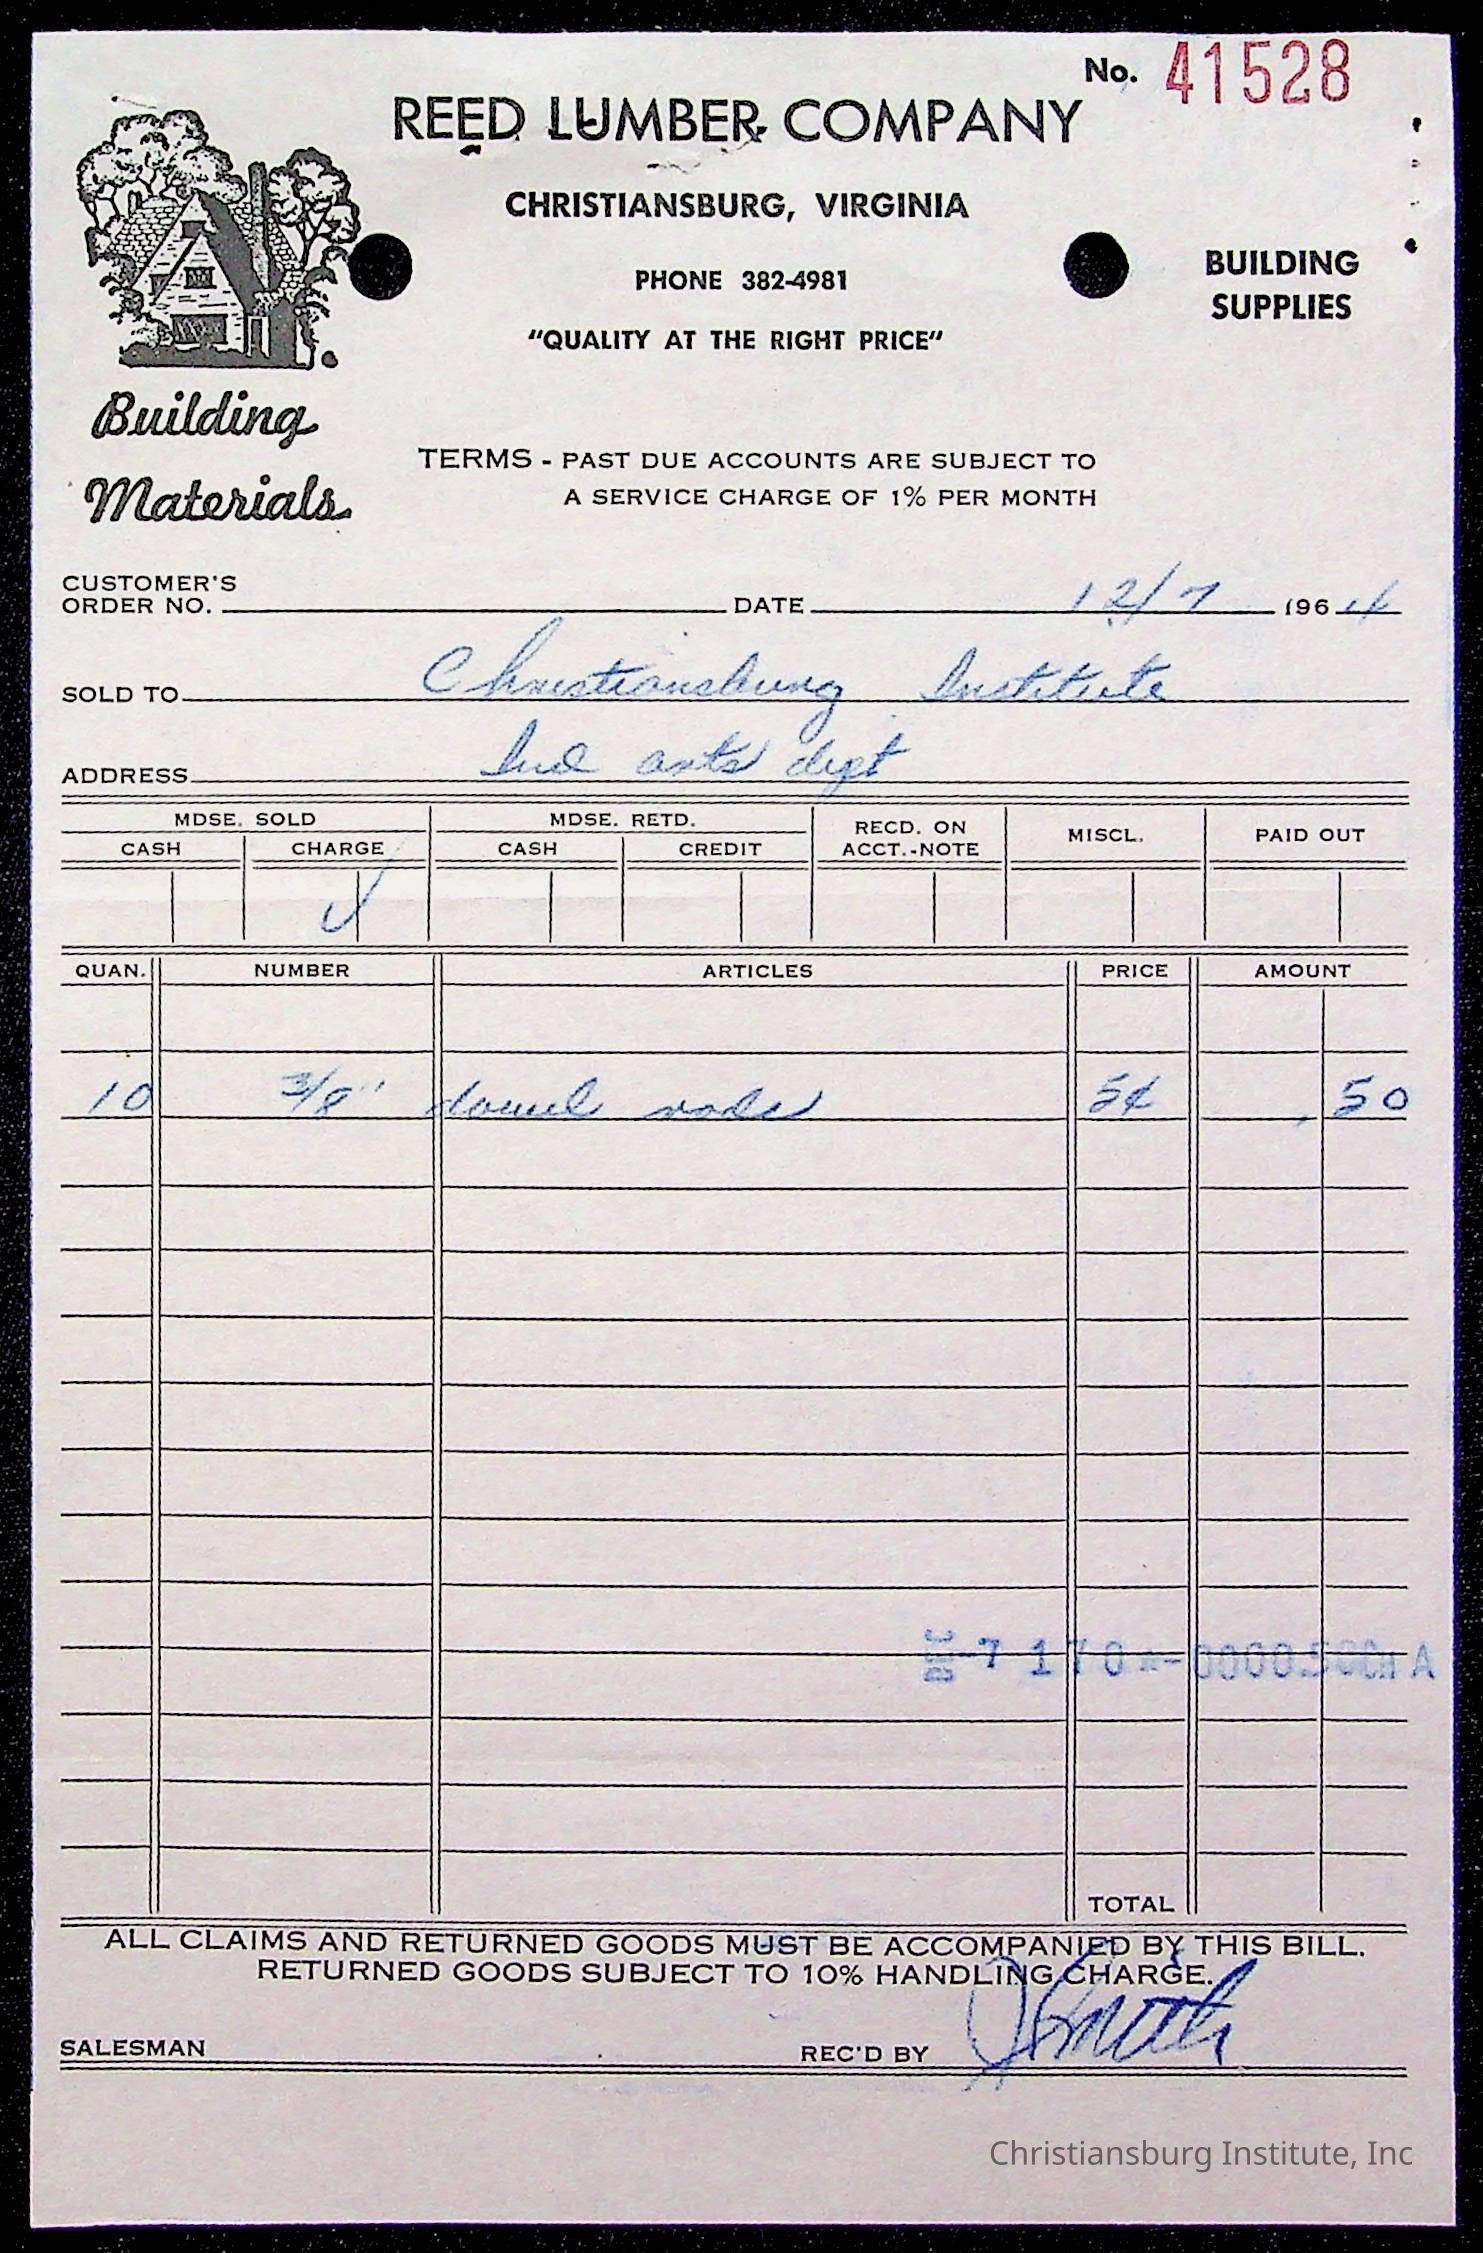 No. 41528
REED LUMBER COMPANY
CHRISTIANSBURG, VIRGINIA
PHONE 382-4981
"QUALITY AT THE RIGHT PRICE"
BUILDING
SUPPLIES
Building
Materials
TERMS - PAST DUE ACCOUNTS ARE SUBJECT TO
A SERVICE CHARGE OF 1% PER MONTH
CUSTOMER'S
ORDER NO. DATE 12/7 1964
SOLD TO Christiansburg Institute
ADDRESS Ind arts dept
MDSE. SOLD MDSE. RETD. RECD. ON ACCT.-NOTE MISCL. PAID OUT
CASH CHARGE CASH CREDIT
✓
QUAN. NUMBER ARTICLES PRICE AMOUNT
10 3/8" dowel rods 5¢ .50
DEC -7 1 7 0 *- 0000.50CH A
TOTAL
ALL CLAIMS AND RETURNED GOODS MUST BE ACCOMPANIED BY THIS BILL.
RETURNED GOODS SUBJECT TO 10% HANDLING CHARGE.
SALESMAN REC'D BY J Smith
Christiansburg Institute, Inc